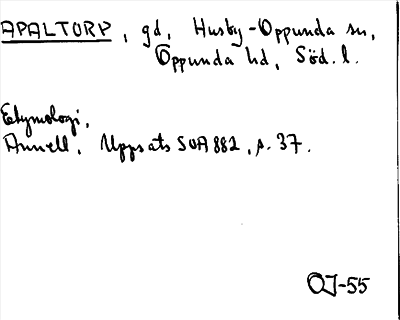 APALTORP, gd, Husby-Oppunda sn,
Oppunda hd, Söd. l.
Etymologi,
Annell, Uppsats SOA 882, s. 37.
OJ-55